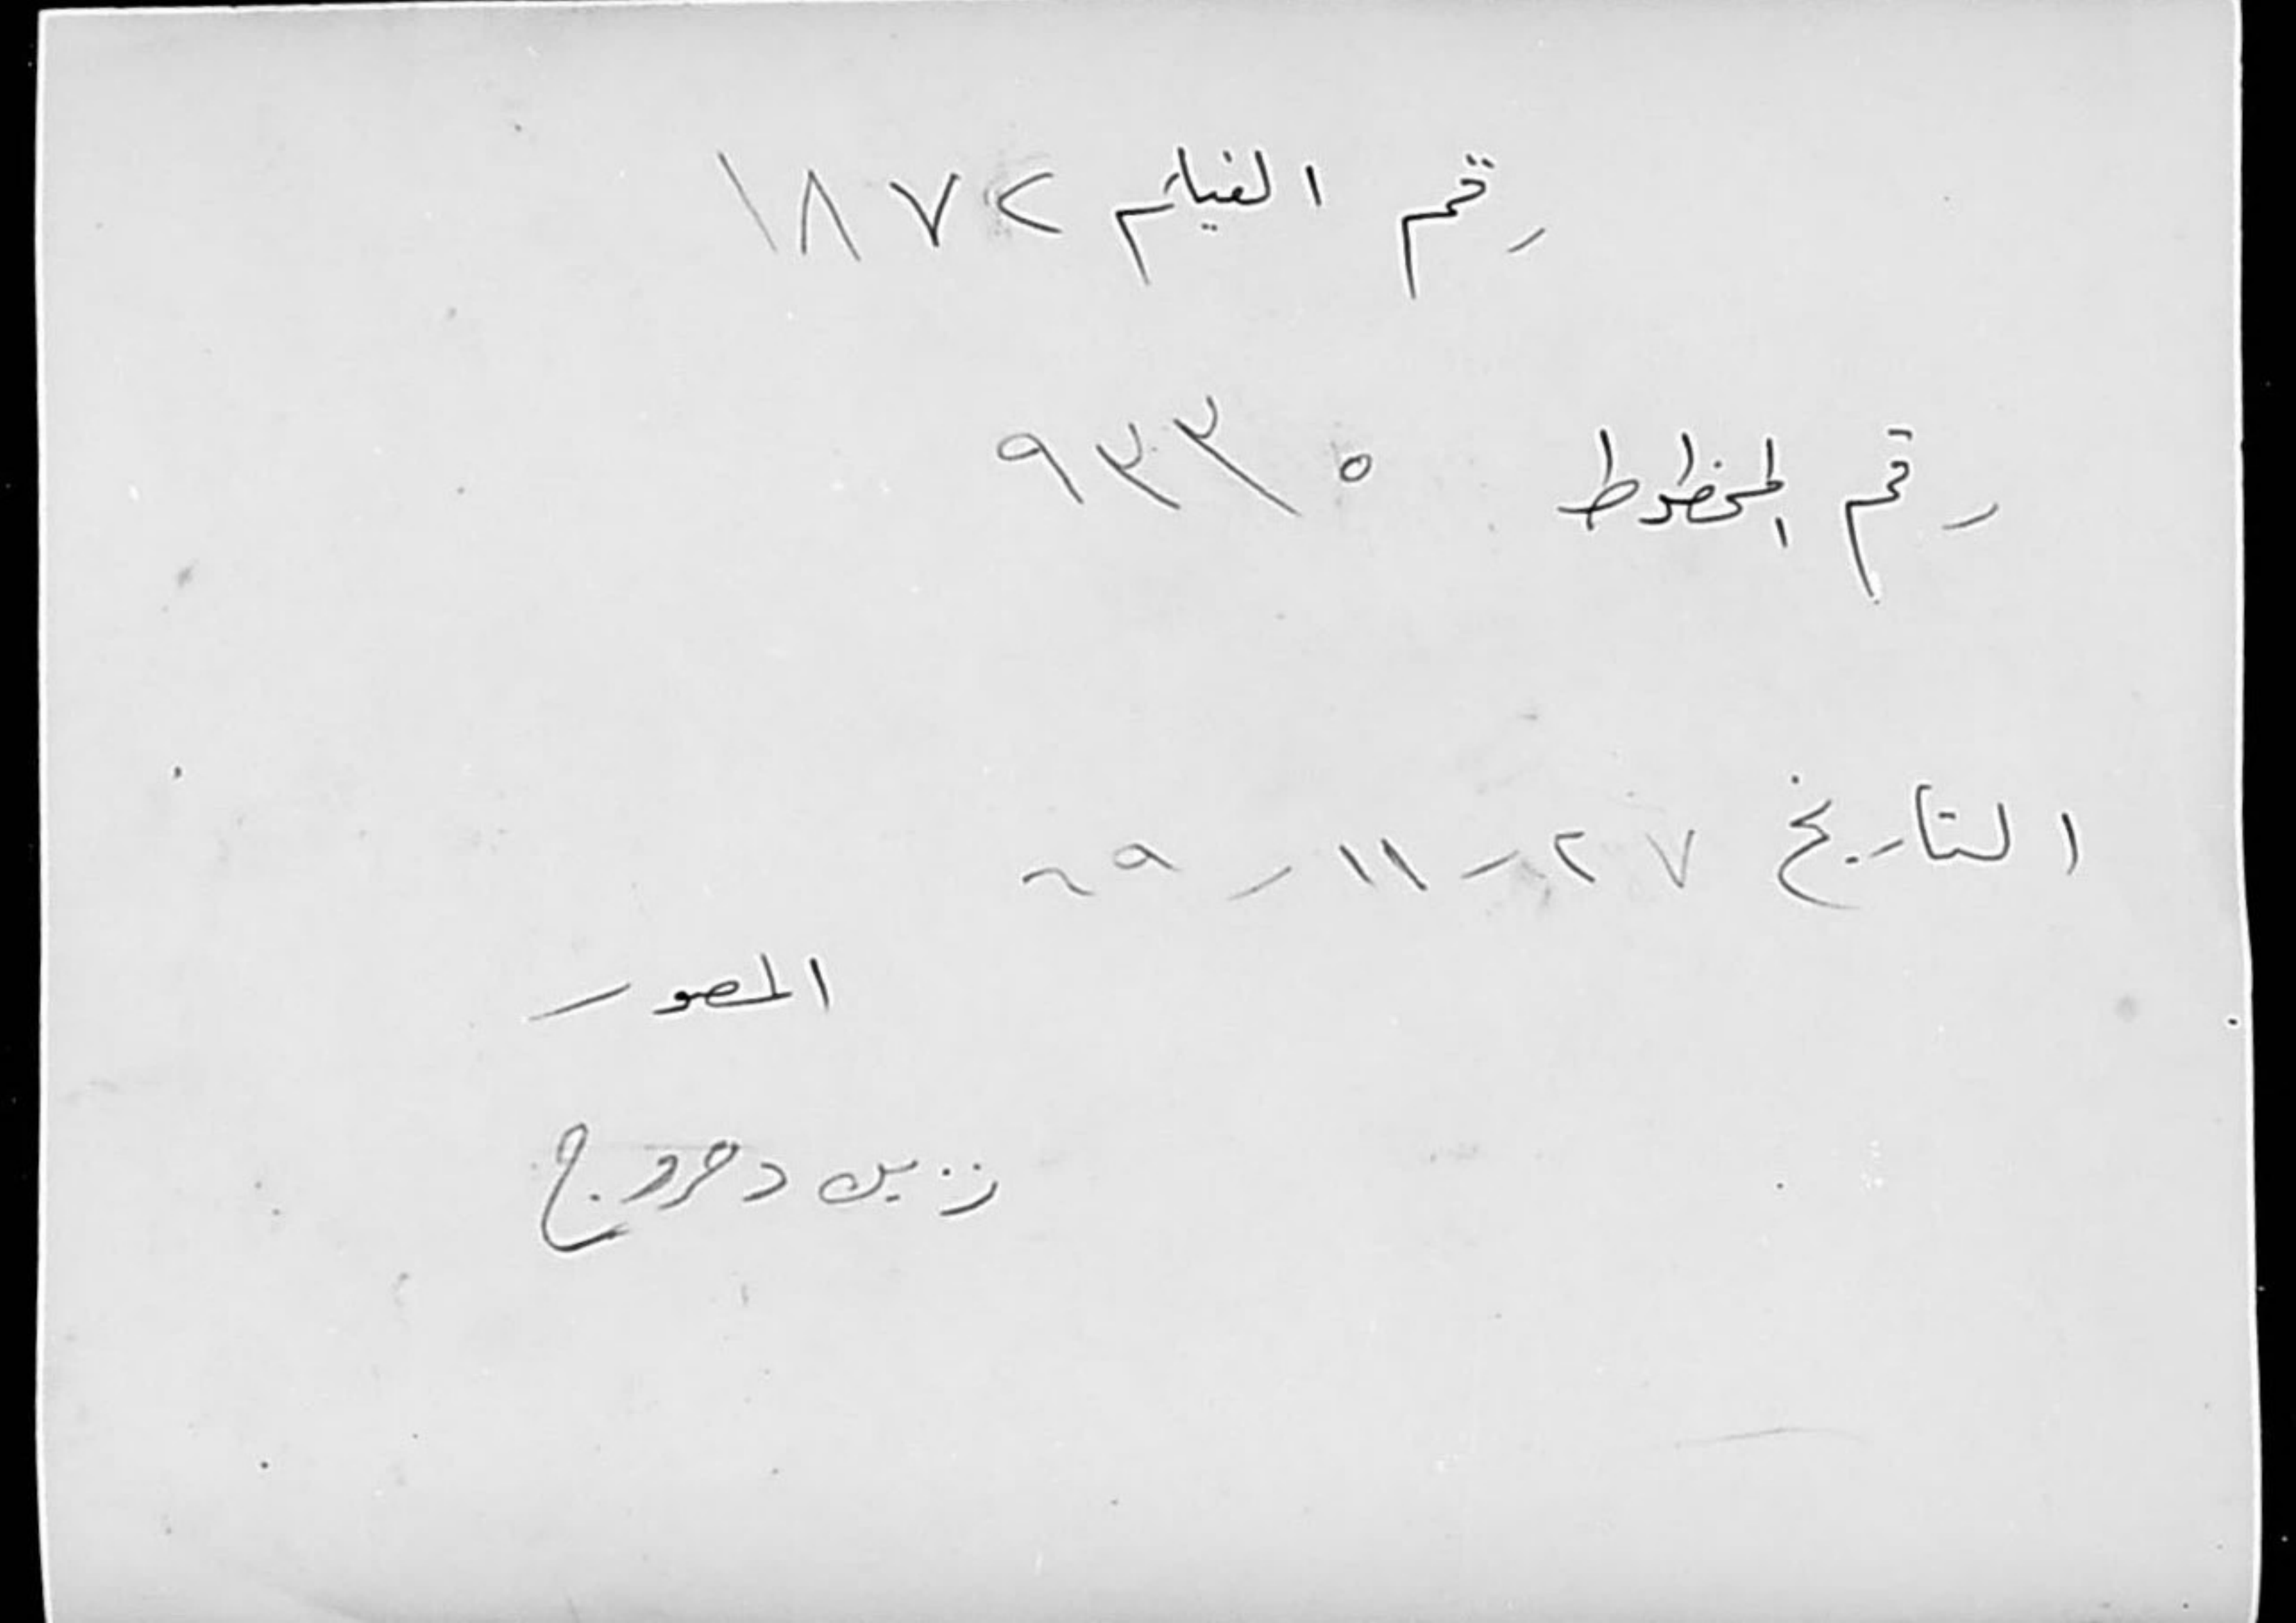 رقم الفيلم ١٨٧٢
رقم المخطوط ٩٣٣٥
التاريخ ٢٧ - ١١ - ٦٩
المصور
زين دحروج